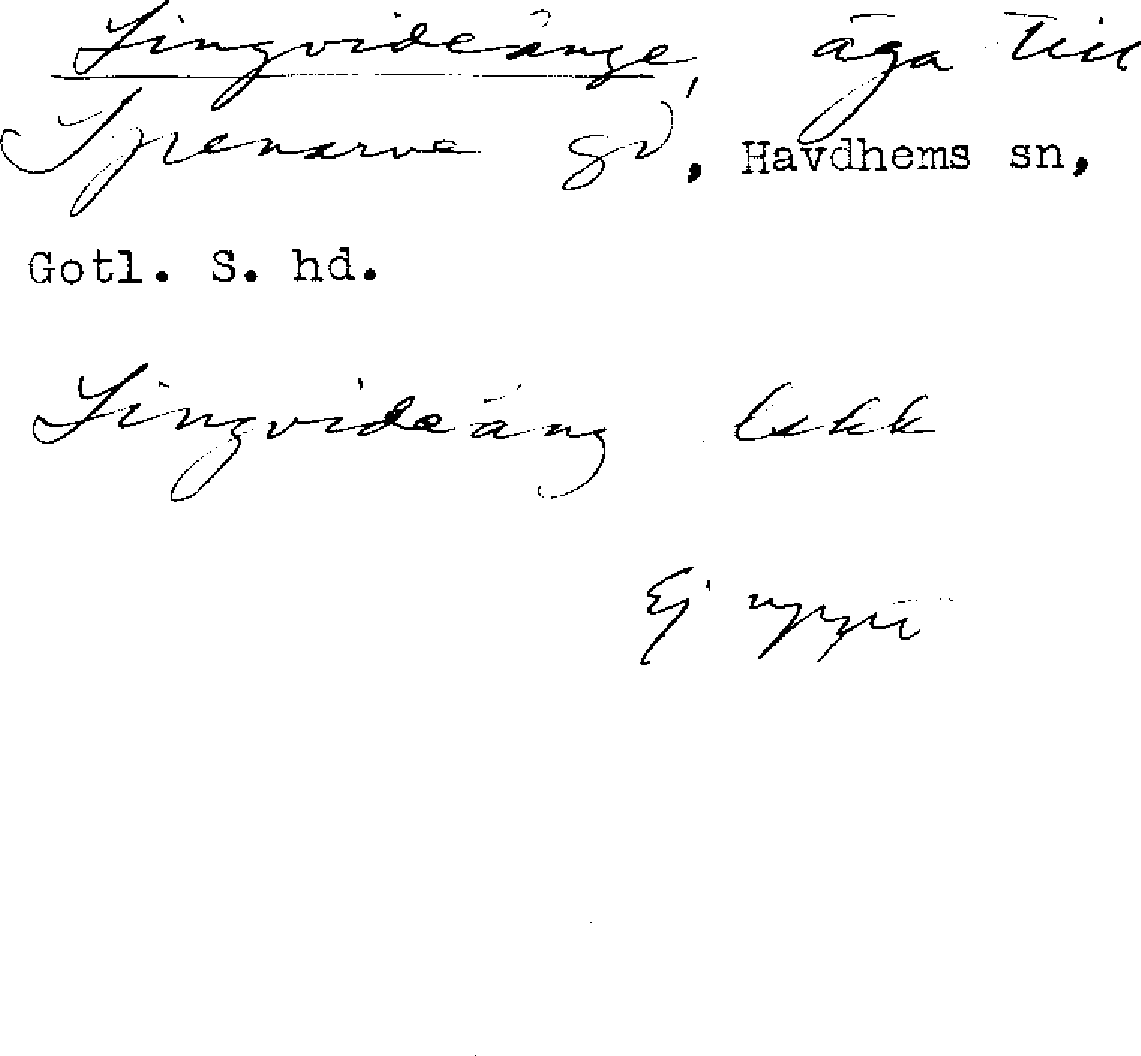 Lingvideänge, äga till
Spenarve gd, Havdhems sn,
Gotl. S. hd.
Lingvideäng Lskk
Ej uppt